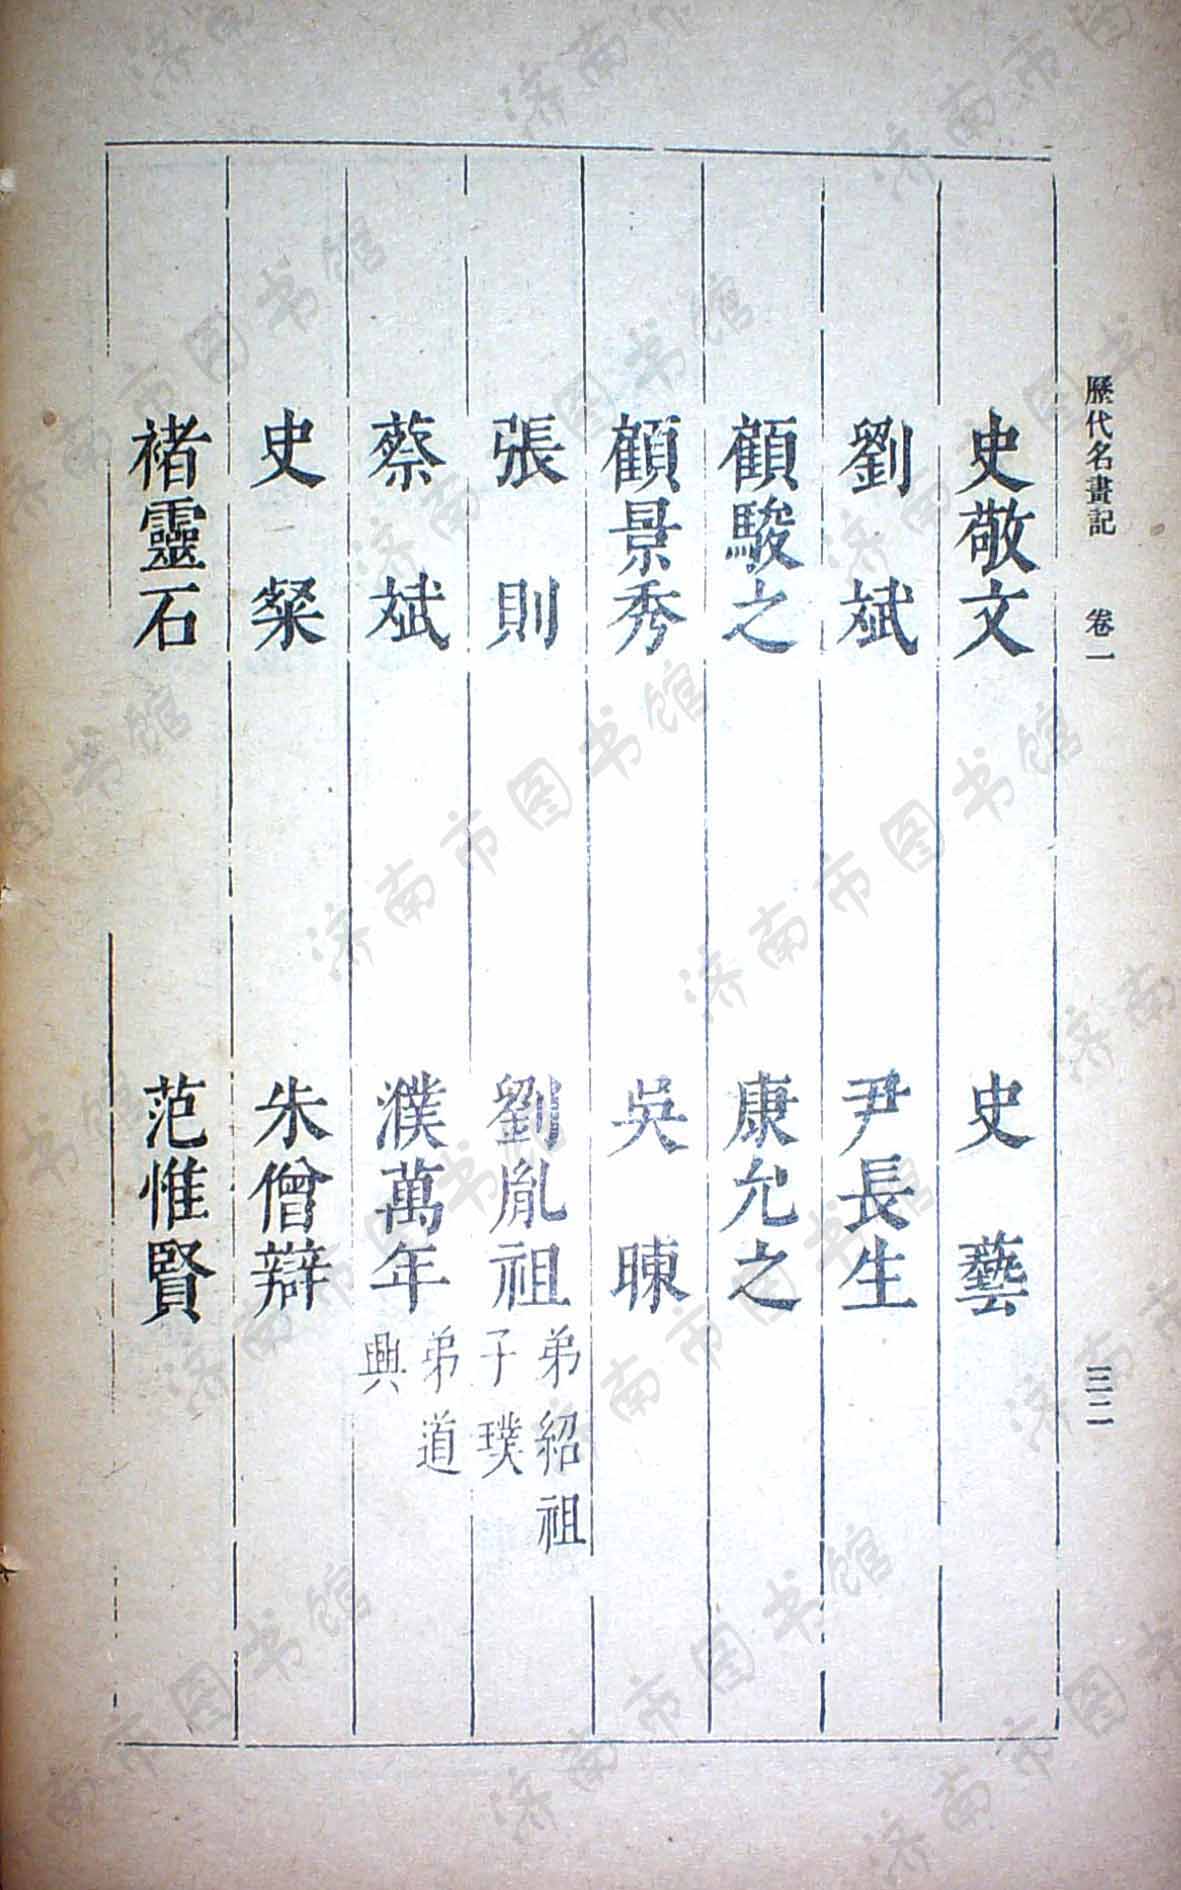 歷代名畫記　卷一　三二
史敬文　史藝
劉斌　尹長生
顧駿之　康允之
顧景秀　吳暕
張則　劉胤祖弟紹祖
子璞
蔡斌　濮萬年弟道
興
史粲　朱僧辯
褚靈石　范惟賢
济南市图书馆